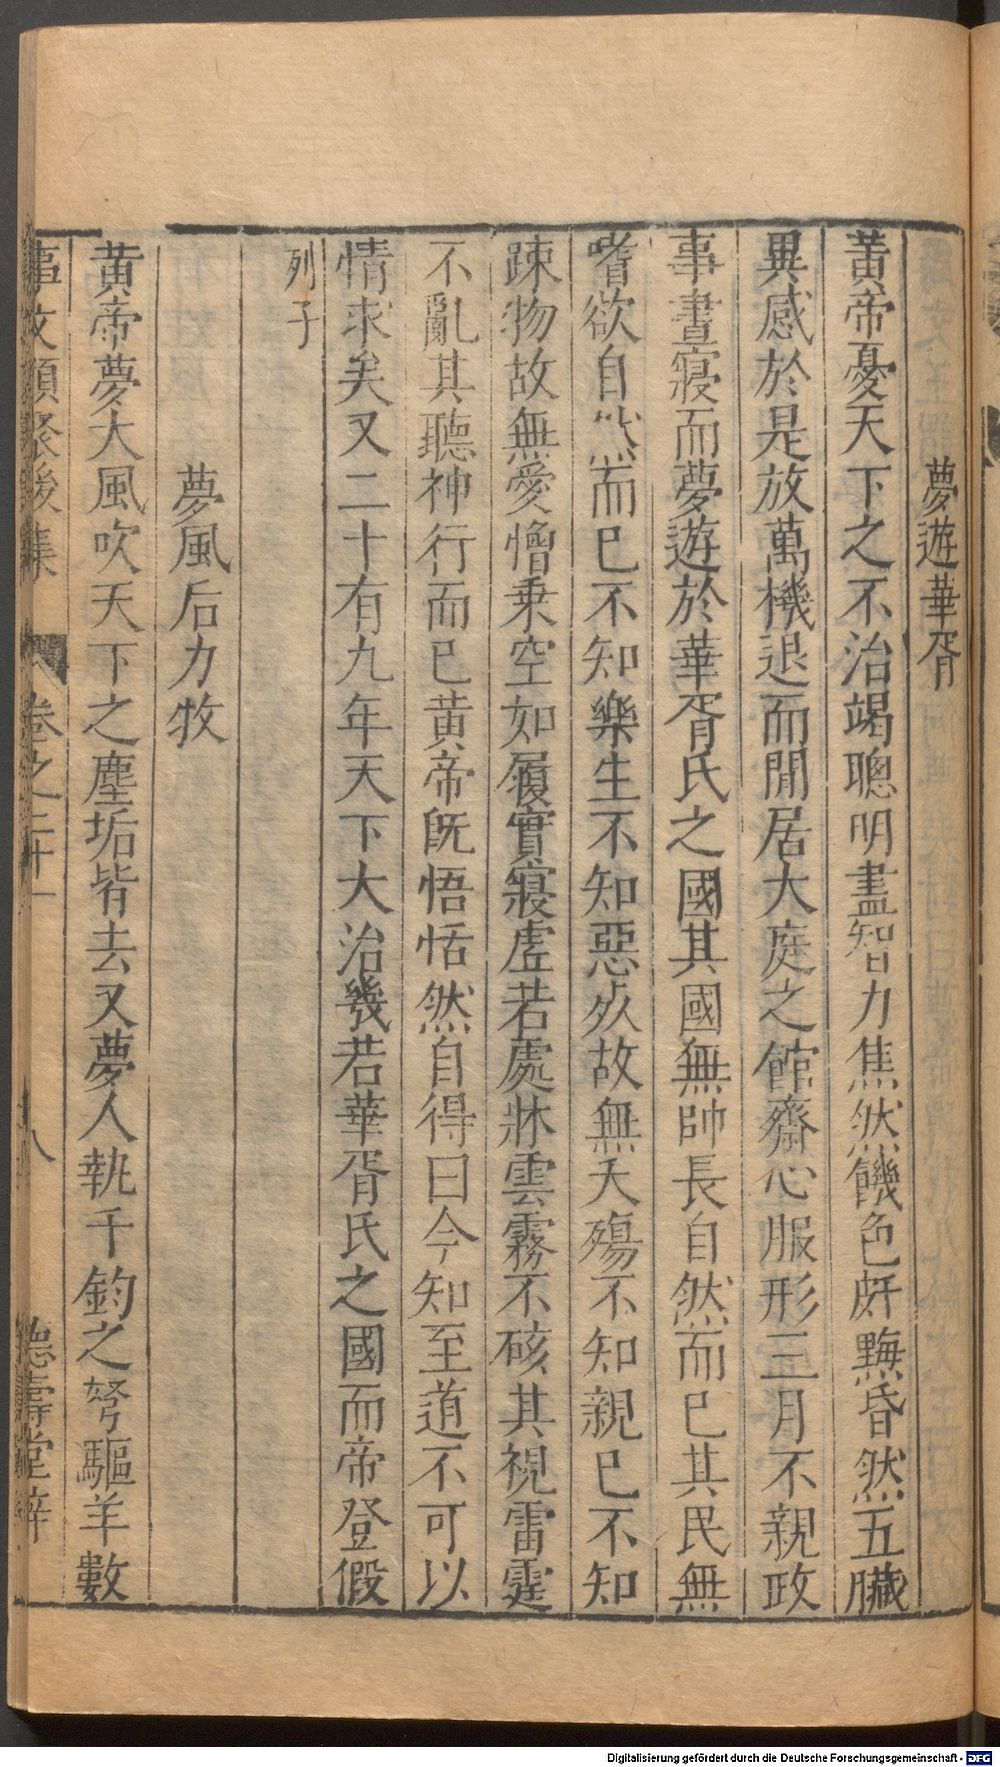 夢遊華胥
黃帝憂天下之不治竭聰明盡智力焦然饑色皯黣昏然五臟
異感於是放萬機退而閒居大庭之館齋心服形三月不親政
事晝寢而夢遊於華胥氏之國其國無帥長自然而已其民無
嗜欲自然而已不知樂生不知惡死故無夭殤不知親己不知
踈物故無愛憎乘空如履實寢虗若處牀雲霧不硋其視雷霆
不亂其聽神行而已黃帝旣悟恬然自得曰今知至道不可以
情求矣又二十有九年天下大治幾若華胥氏之國而帝登假
列子
夢風后力牧
黃帝夢大風吹天下之塵垢皆去又夢人執千鈞之弩驅羊數
事文類聚後集 卷之二十一 八 德壽堂梓
Digitalisierung gefördert durch die Deutsche Forschungsgemeinschaft - DFG